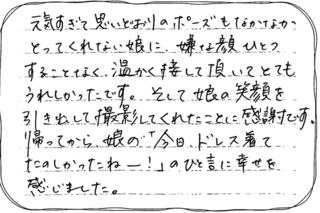 元気すぎて思いどおりのポーズもなかなか
とってくれない娘に、嫌な顔ひとつ
することなく、温かく接して頂いてとても
うれしかったです。そして娘の笑顔を
引き出して撮影してくれたことに感謝です。
帰ってから、娘の「今日、ドレス着て
たのしかったねー！」のひと言に幸せを
感じました。